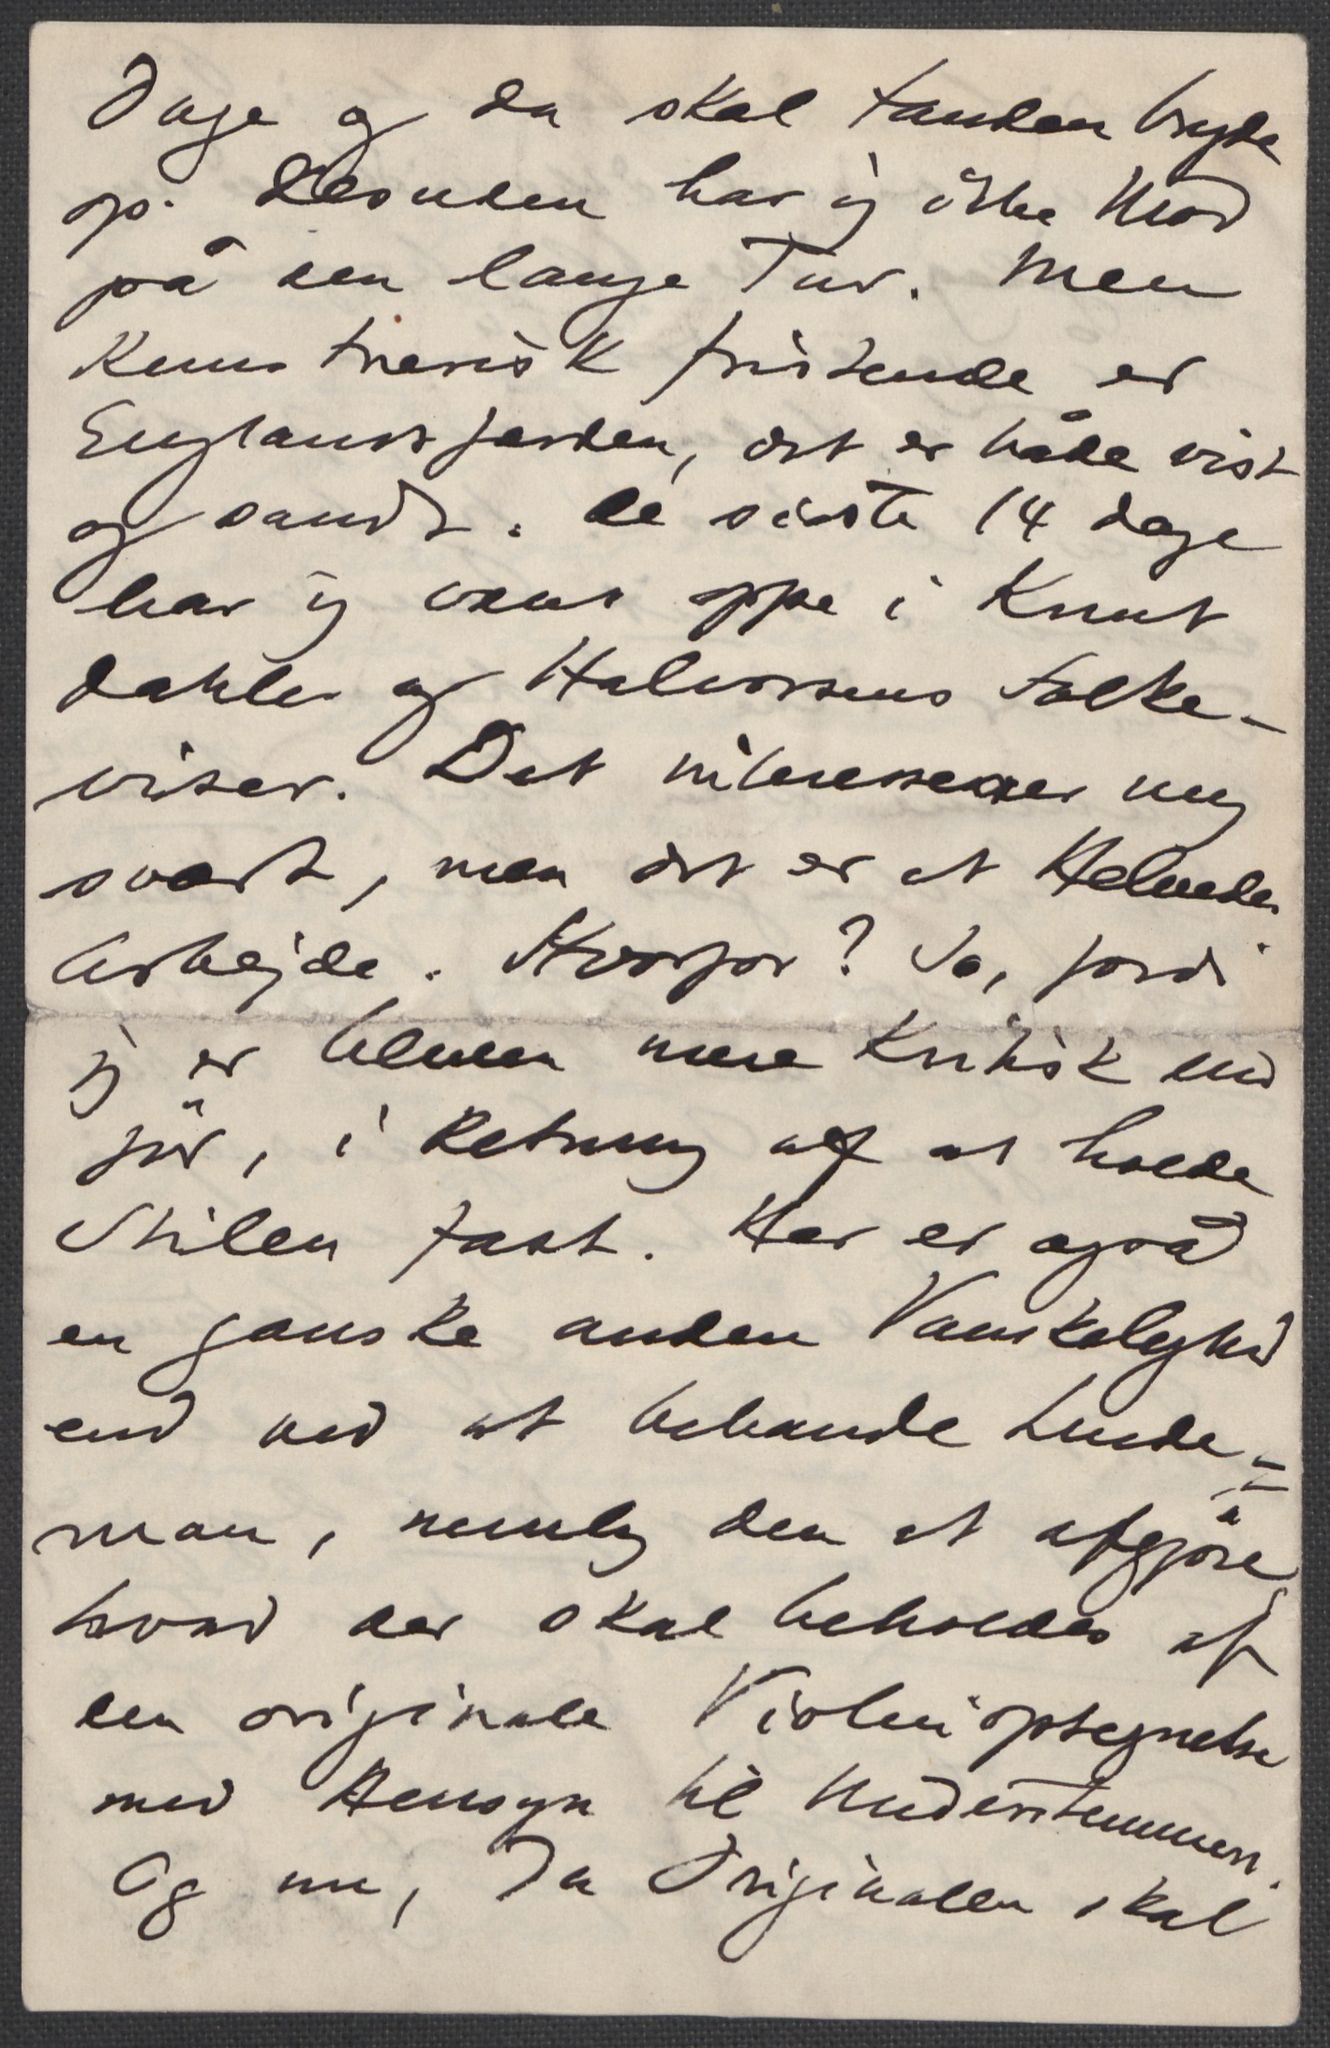 Dage og da skal tanden bryde
op. Desuden har jeg ikke Mod
på den lange Tur. Men
Kunstnerisk fristende er
Englandsfærden, det er både vist
og sandt. De sidste 14 dage
har jeg været oppe i Knut
Dahles og Halvorsens Folke-
viser. Det interesserer mig
svært, men det er et Helvedes
Arbejde. Hvorfor? Jo, fordi
jeg er bleven mere Kritisk end
för, i Retning af at holde
Stilen fast. Her er også
en ganske anden Vanskelighed
end ved at behandle Linde-
man, nemlig den at afgjöre
hvad der skal beholdes af
den originale Violinoptegnelse
med Hensyn til Understemmen.
Og nu, da Originalen skal